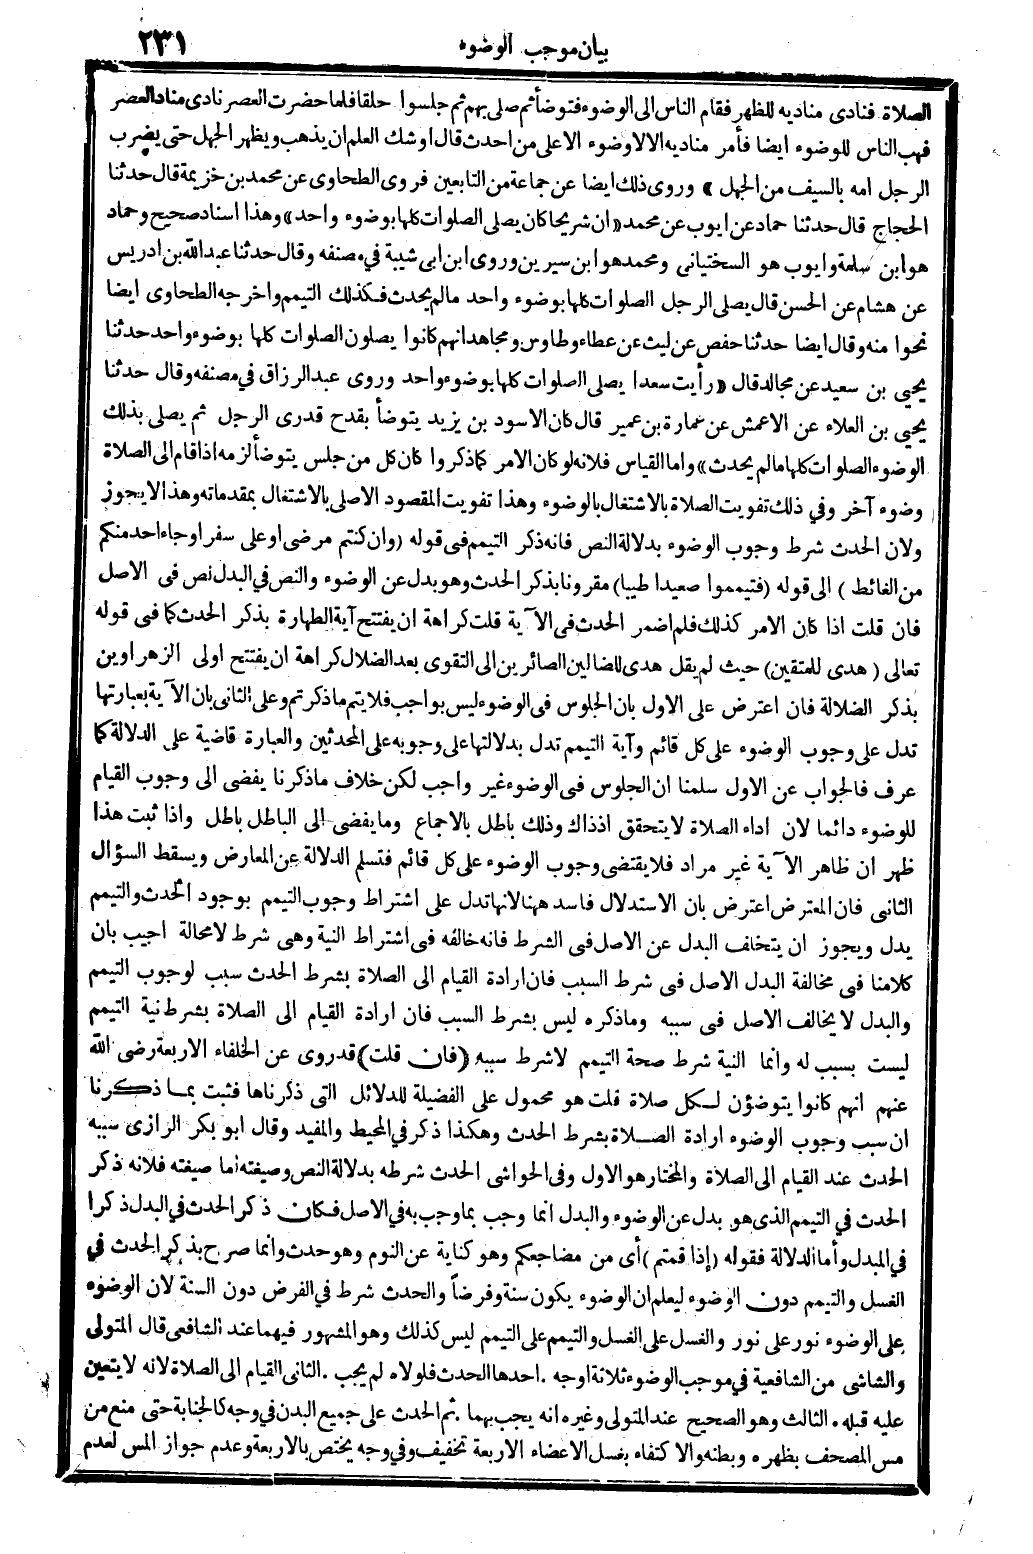 بيان موجب الوضوء
٢٣١
الصلاة فنادى مناديه للظهر فقام الناس الى الوضوء فتوضأ ثم صلى بهم ثم جلسوا حلقا فلما حضرت العصر نادى مناد العصر
فهب الناس للوضوء ايضا فأمر مناديه الا لا وضوء الا على من احدث قال اوشك العلم ان يذهب ويظهر الجهل حتى يضرب
الرجل امه بالسيف من الجهل » وروى ذلك ايضا عن جماعة من التابعين فروى الطحاوى عن محمد بن خزيمة قال حدثنا
الحجاج قال حدثنا حماد عن ايوب عن محمد « ان شريحا كان يصلى الصلوات كلها بوضوء واحد » وهذا اسناد صحيح وحماد
هو ابن سلمة وايوب هو السختيانى ومحمد هو ابن سيرين وروى ابن ابى شيبة في مصنفه وقال حدثنا عبد الله بن ادريس
عن هشام عن الحسن قال يصلى الرجل الصلوات كلها بوضوء واحد ما لم يحدث فكذلك التيمم واخرجه الطحاوى ايضا
نحوا منه وقال ايضا حدثنا حفص عن ليث عن عطاء وطاوس ومجاهد انهم كانوا يصلون الصلوات كلها بوضوء واحد حدثنا
يحيى بن سعيد عن مجالد قال « رأيت سعدا يصلى الصلوات كلها بوضوء واحد وروى عبد الرزاق في مصنفه وقال حدثنا
يحيى بن العلاء عن الاعمش عن عمارة بن عمير قال كان الاسود بن يزيد يتوضأ بقدح قدرى الرجل ثم يصلى بذلك
الوضوء الصلوات كلها ما لم يحدث » واما القياس فلانه لو كان الامر كما ذكروا كان كل من جلس يتوضأ لزمه اذا قام الى الصلاة
وضوء آخر وفي ذلك تفويت الصلاة بالاشتغال بالوضوء وهذا تفويت المقصود الاصلى بالاشتغال بمقدماته وهذا لا يجوز
ولان الحدث شرط وجوب الوضوء بدلالة النص فانه ذكر التيمم فى قوله (وان كنتم مرضى او على سفر او جاء احد منكم
من الغائط ) الى قوله (فتيمموا صعيدا طيبا) مقرونا بذكر الحدث وهو بدل عن الوضوء والنص في البدل نص فى الاصل
فان قلت اذا كان الامر كذلك فلم اضمر الحدث فى الآية قلت كراهة ان يفتتح آية الطهارة بذكر الحدث كما فى قوله
تعالى ( هدى للمتقين) حيث لم يقل هدى للضالين الصائرين الى التقوى بعد الضلال كراهة ان يفتتح اولى الزهراوين
بذكر الضلالة فان اعترض على الاول بان الجلوس فى الوضوء ليس بواجب فلا يتم ما ذكرتم وعلى الثانى بان الآية بعبارتها
تدل على وجوب الوضوء على كل قائم وآية التيمم تدل بدلالتها على وجوبه على المحدثين والعبارة قاضية على الدلالة كما
عرف فالجواب عن الاول سلمنا ان الجلوس فى الوضوء غير واجب لكن خلاف ما ذكرنا يفضى الى وجوب القيام
للوضوء دائما لان اداء الصلاة لا يتحقق اذ ذاك وذلك باطل بالاجماع وما يفضى الى الباطل باطل واذا ثبت هذا
ظهر ان ظاهر الآية غير مراد فلا يقتضى وجوب الوضوء على كل قائم فتسلم الدلالة عن المعارض ويسقط السؤال
الثانى فان المعترض اعترض بان الاستدلال فاسد ههنا لانها تدل على اشتراط وجوب التيمم بوجود الحدث والتيمم
بدل ويجوز ان يتخلف البدل عن الاصل فى الشرط فانه خالفه فى اشتراط النية وهى شرط لا محالة اجيب بان
كلامنا فى مخالفة البدل الاصل فى شرط السبب فان ارادة القيام الى الصلاة بشرط الحدث سبب لوجوب التيمم
والبدل لا يخالف الاصل فى سببه وما ذكره ليس بشرط السبب فان ارادة القيام الى الصلاة بشرط نية التيمم
ليست بسبب له وانما النية شرط صحة التيمم لا شرط سببه (فان قلت) قد روى عن الخلفاء الاربعة رضى الله
عنهم انهم كانوا يتوضؤن لكل صلاة قلت هو محمول على الفضيلة للدلائل التى ذكرناها فثبت بما ذكرنا
ان سبب وجوب الوضوء ارادة الصلاة بشرط الحدث وهكذا ذكر في المحيط والمفيد وقال ابو بكر الرازى سببه
الحدث عند القيام الى الصلاة والمختار هو الاول وفى الحواشى الحدث شرطه بدلالة النص وصيغته اما صيغته فلانه ذكر
الحدث في التيمم الذى هو بدل عن الوضوء والبدل انما وجب بما وجب به في الاصل فكان ذكر الحدث في البدل ذكرا
في المبدل وأما الدلالة فقوله (إذا قمتم) أى من مضاجعكم وهو كناية عن النوم وهو حدث وانما صرح بذكر الحدث في
الغسل والتيمم دون الوضوء ليعلم ان الوضوء يكون سنة وفرضاً والحدث شرط في الفرض دون السنة لان الوضوء
على الوضوء نور على نور والغسل على الغسل والتيمم على التيمم ليس كذلك وهو المشهور فيهما عند الشافعى قال المتولى
والشاشى من الشافعية في موجب الوضوء ثلاثة اوجه . احدها الحدث فلولاه لم يجب . الثانى القيام الى الصلاة لانه لا يتعين
عليه قبله . الثالث وهو الصحيح عند المتولى وغيره انه يجب بهما . ثم الحدث على جميع البدن في وجه كالجنابة حتى منع من
مس المصحف بظهره وبطنه والاكتفاء بغسل الاعضاء الاربعة تخفيف وفي وجه يختص بالاربعة وعدم جواز المس لعدم